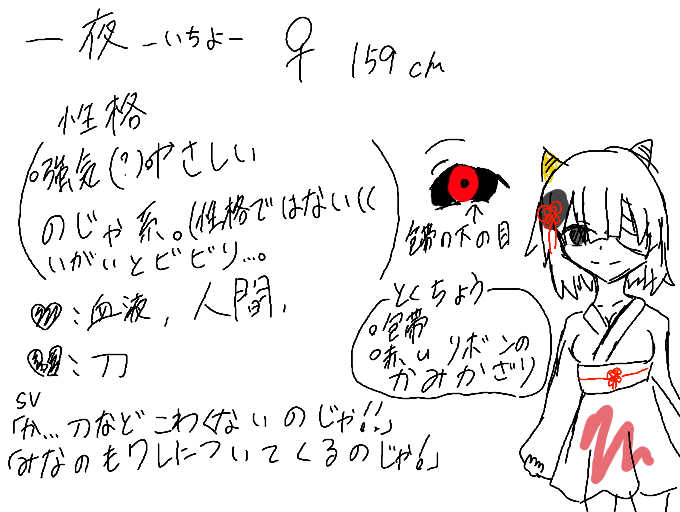 一夜 -いちよ- ♀ 159cm
性格
○強気(?)○やさしい
のじゃ系。(性格ではない((
いがいとビビリ…。
包帯の下の目
♥:血液, 人間,
:刀
とくちょう
○包帯
○赤いリボンの
かみかざり
SV
「か…刀などこわくないのじゃ!!」
「みなのもワレについてくるのじゃ!」